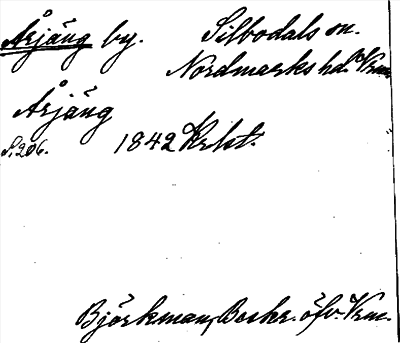 Årjäng by. Silbodals sn.
Nordmarks hd. Vrm.
Årjäng
S. 206. 1842 Krlst.
Björkman, Beskr. öfv. Vrm.